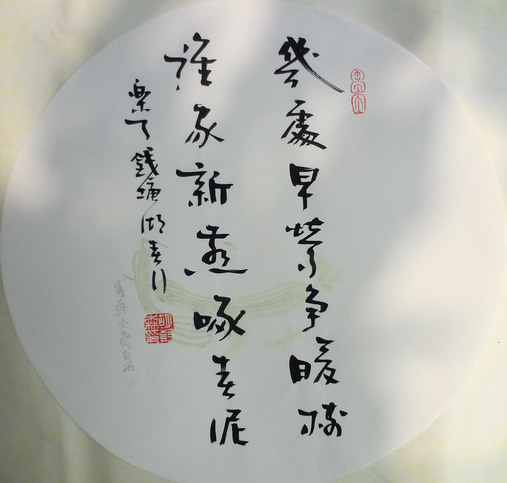 幾處早鶯争暖樹
誰家新燕啄春泥
樂天錢塘湖春行